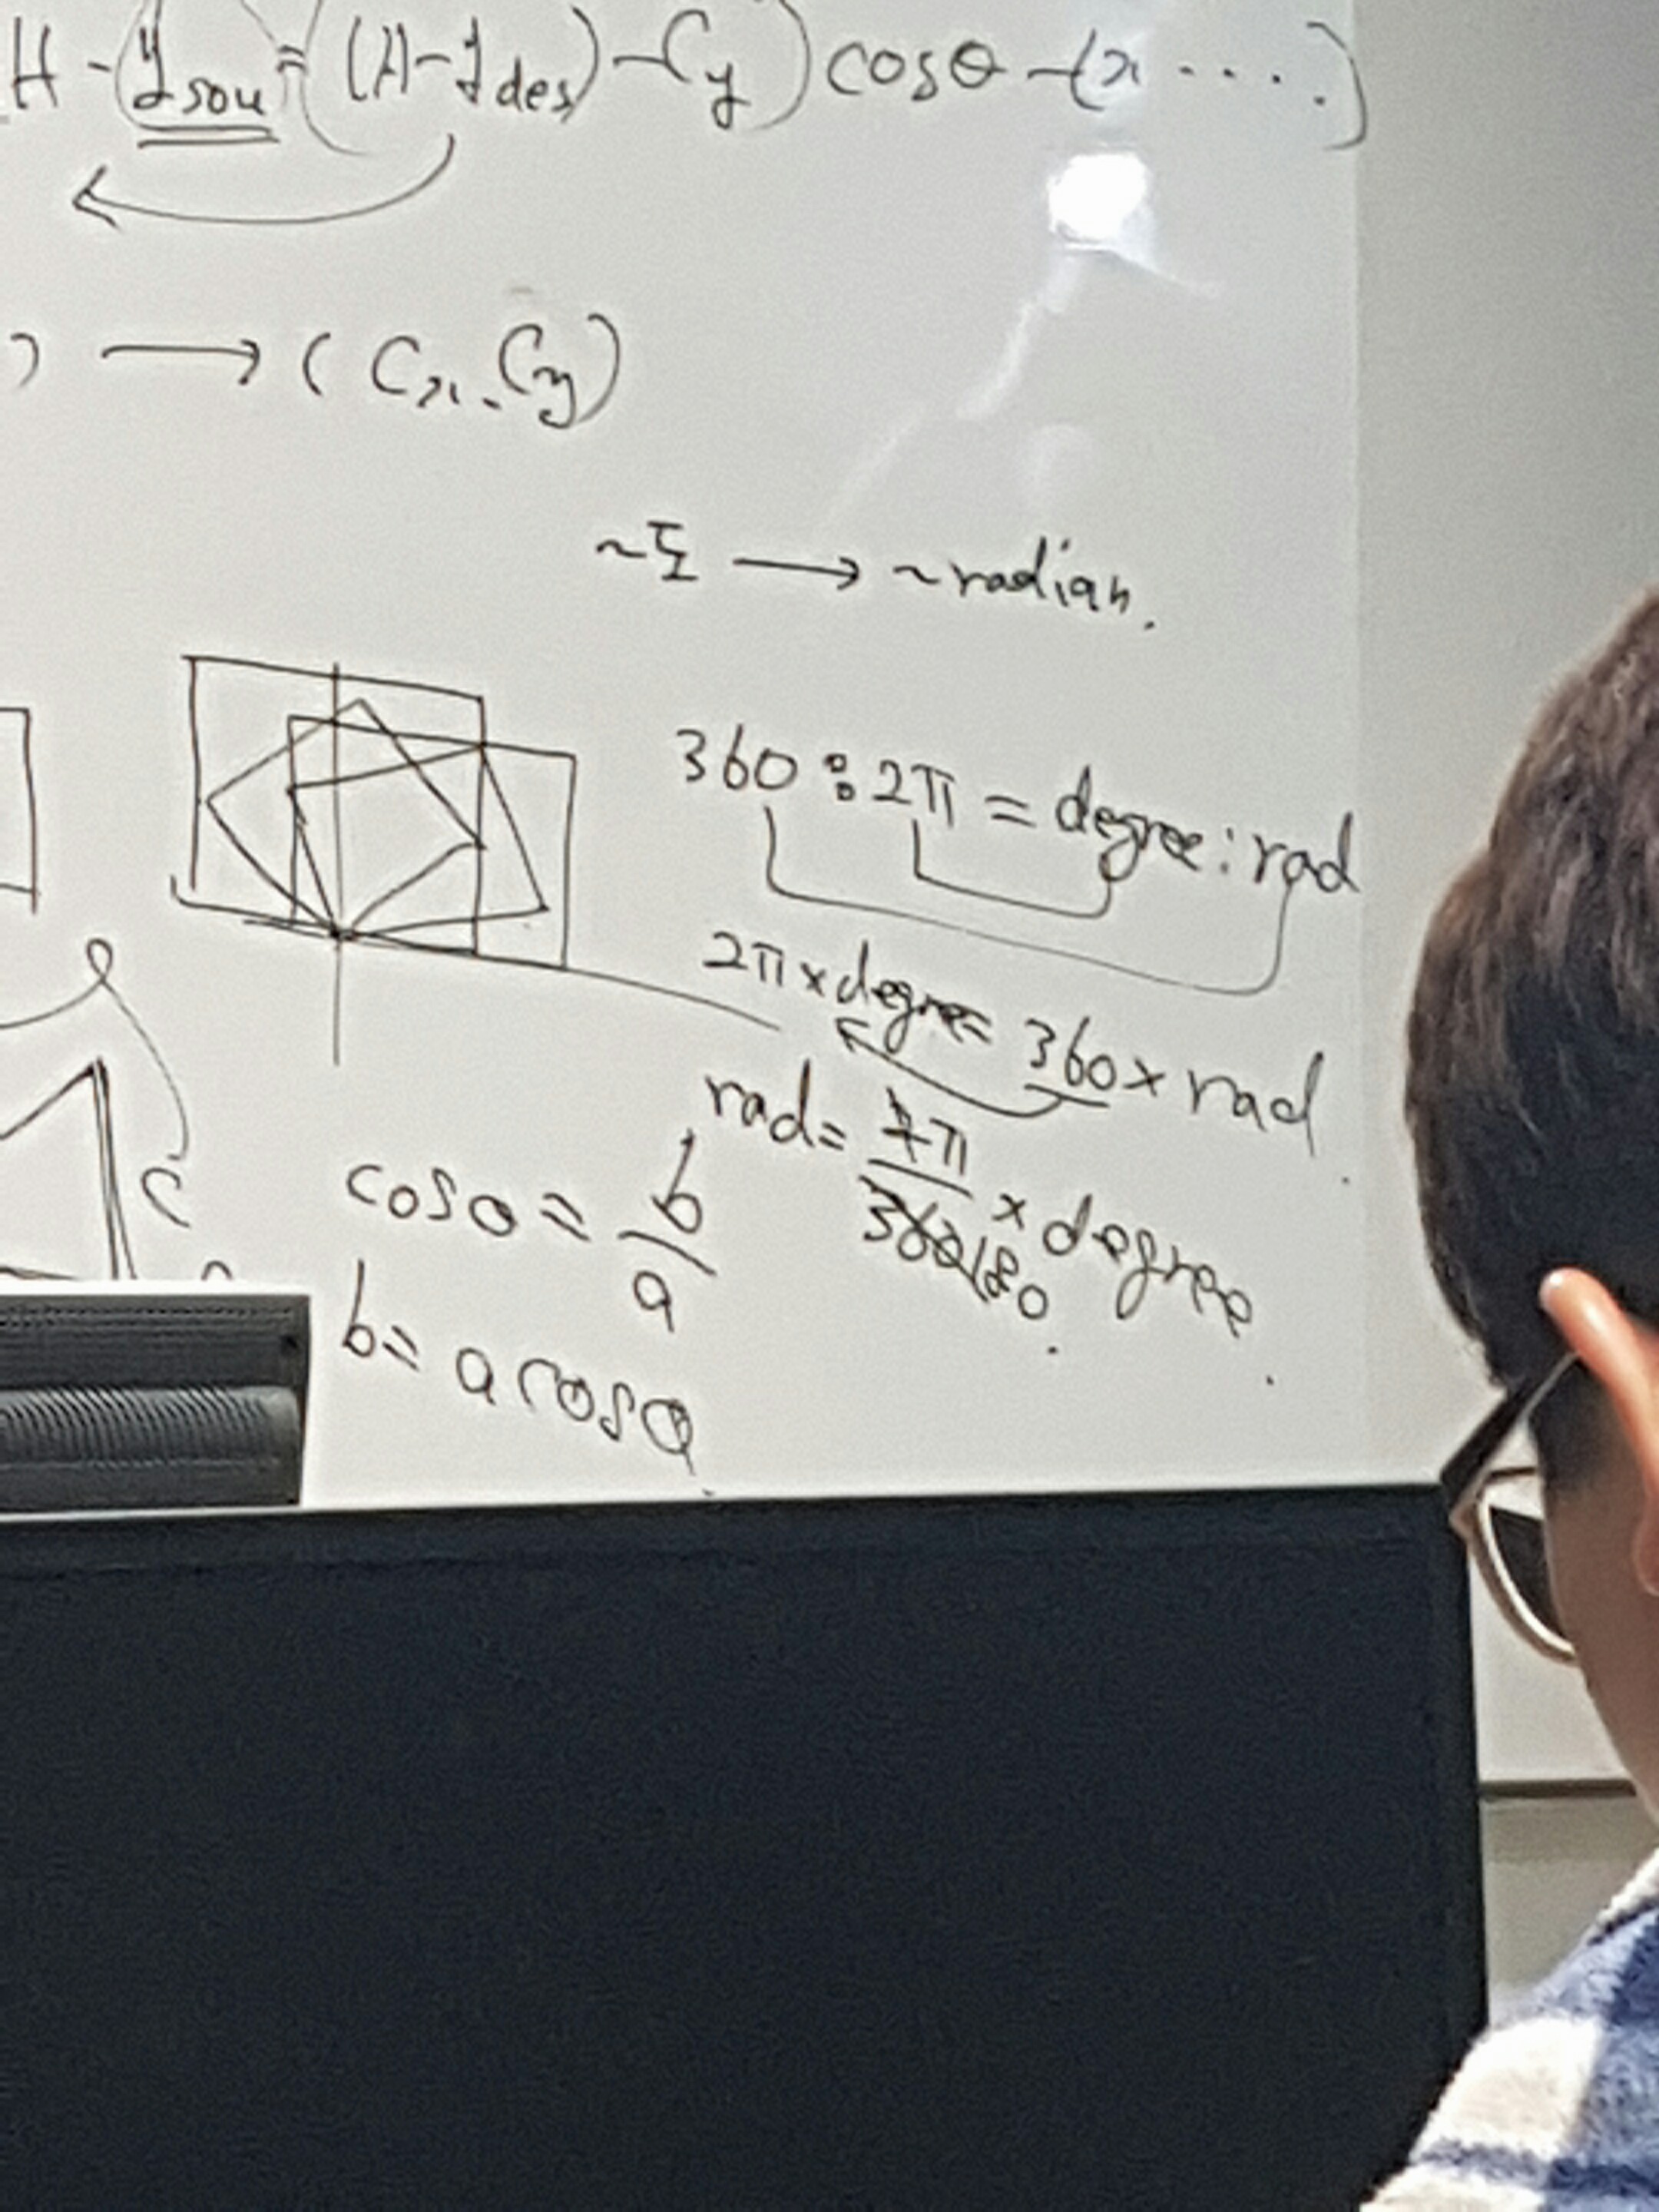 H - y sou = (H - y des) - Cy) cosθ - (x ....)
) → (Cx. Cy)
~도 → ~radian.
360 : 2π = degree : rad
2π × degree = 360 × rad
rad = 2π / 360 180 × degree
cosθ = b / a
b = a cosθ